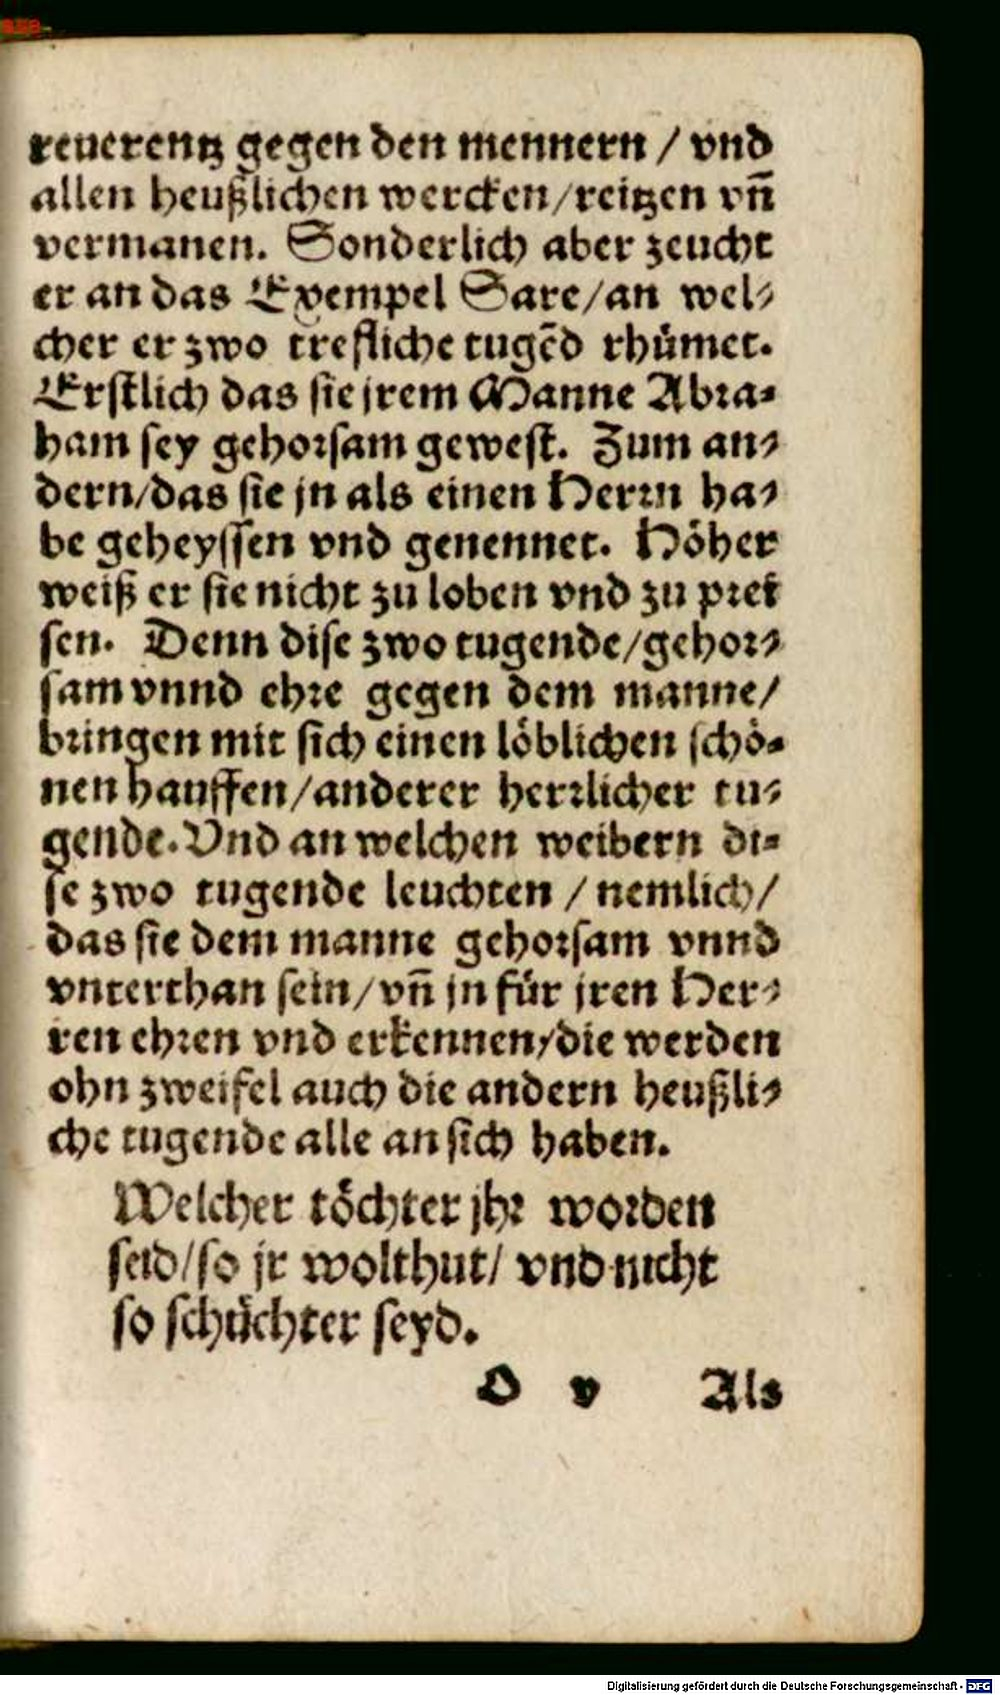 reuerentz gegen den mennern / vnd
allen heußlichen wercken/reitzen vñ
vermanen. Sonderlich aber zeucht
er an das Exempel Sare/an wel-
cher er zwo trefliche tugẽd rhümet.
Erstlich das sie jrem Manne Abra-
ham sey gehorsam gewest. Zum an-
dern/das sie jn als einen Herrn ha-
be geheyssen vnd genennet. Höher
weiß er sie nicht zu loben vnd zu prei
sen. Denn dise zwo tugende/gehor-
sam vnnd ehre gegen dem manne/
bringen mit sich einen löblichen schö-
nen hauffen/anderer herrlicher tu-
gende. Vnd an welchen weibern di-
se zwo tugende leuchten / nemlich/
das sie dem manne gehorsam vnnd
vnterthan sein/vñ jn für jren Her-
ren ehren vnd erkennen/die werden
ohn zweifel auch die andern heußli-
che tugende alle an sich haben.
Welcher töchter jhr worden
seid/so jr wolthut/ vnd nicht
so schüchter seyd.
O v Als
Digitalisierung gefördert durch die Deutsche Forschungsgemeinschaft - DFG